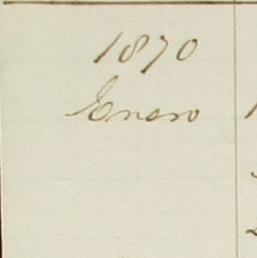 1870
Enero